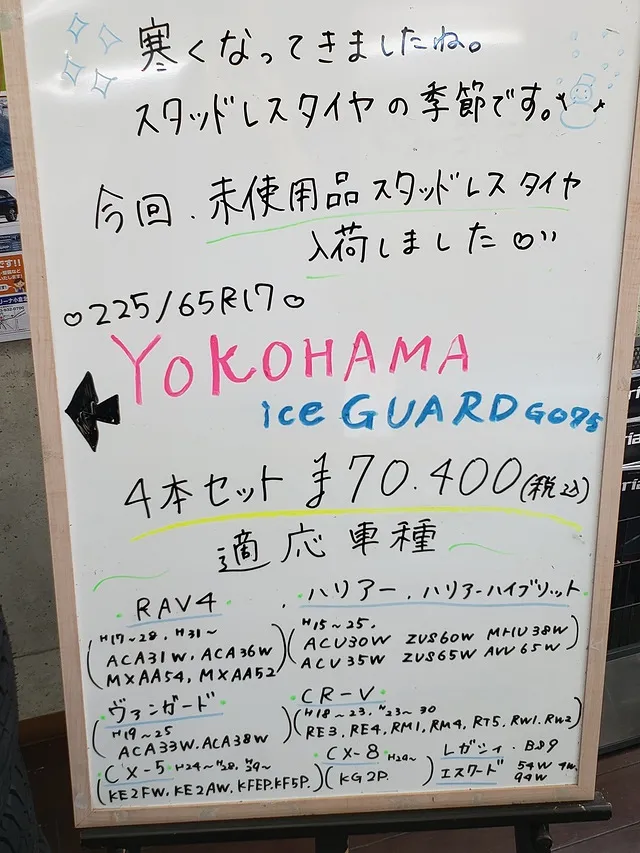 寒くなってきましたね。
スタッドレスタイヤの季節です。
今回、未使用品スタッドレスタイヤ
入荷しました♡"
♡225/65R17♡
YOKOHAMA
ice GUARD G075
4本セット ¥70.400(税込)
適応車種
・RAV4・
(H17~28. H31~
ACA31W. ACA36W
MXAA54, MXAA52)
・ハリアー.ハリアーハイブリット
(H15~25.
ACU30W ZUS60W MHU38W
ACU35W ZUS65W AVU65W)
・ヴァンガード・
(H19~25
ACA33W.ACA38W)
・CR-V・
(H18~23. H23~30
RE3, RE4, RM1, RM4, RT5, RW1, RW2)
・CX-5 H24~H28. H29~
(KE2FW. KE2AW. KFEP.KF5P.)
・CX-8・ H29~
(KG2P.)
レガシィ・BS9
エスクード 54W 4W.
94W